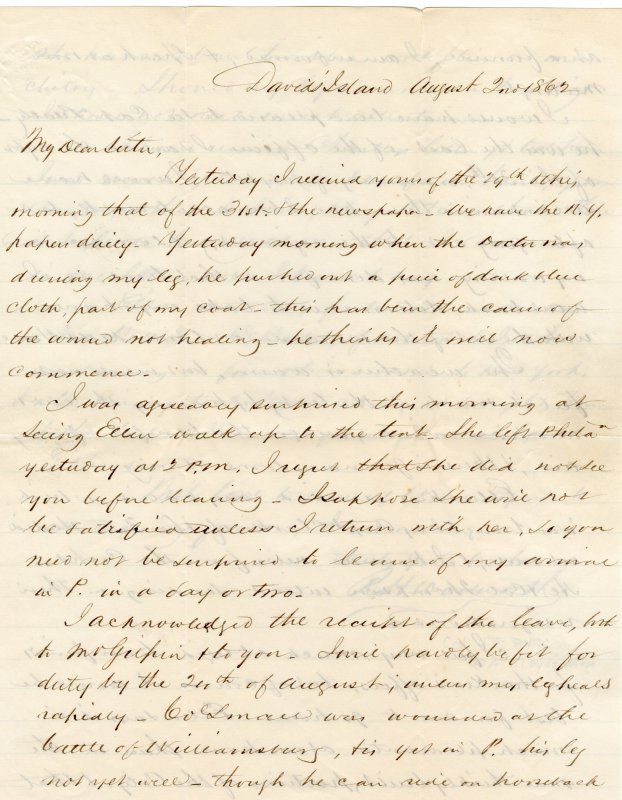 David's Island August 2nd 1862
My Dear Sister,
Yesterday I received yours of the 29th & this
morning that of the 31st. & the newspaper - We have the N.Y.
papers daily. Yesterday morning when the Doctor was
dressing my leg, he pushed out a piece of dark blue
cloth, part of my coat - this has been the cause of
the wound not healing - he thinks it will now
commence -
I was agreeably surprised this morning at
seeing Ellen walk up to the tent. She left Philaa
yesterday at 2 P.M. I regret that she did not see
you before leaving - I suppose she will not
be satisfied unless I return with her, so you
need not be surprised to learn of my arrival
in P. in a day or two -
I acknowledged the receipt of the leave, both
to Mr Gilpin & to you - I will hardly be fit for
duty by the 20th of August, unless my leg heals
rapidly - Col Small was wounded at the
battle of Williamsburg, & is yet in P. his leg
not yet well - though he can ride on horseback